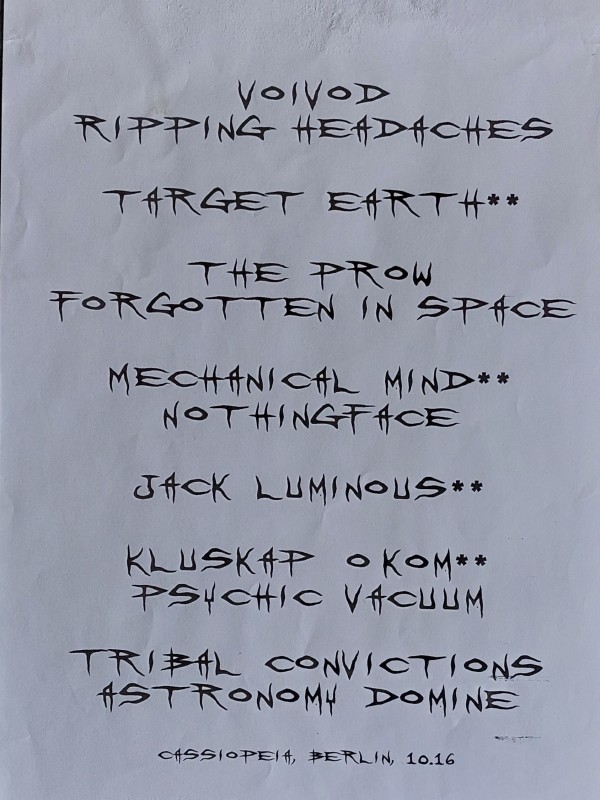 VOIVOD
RIPPING HEADACHES
TARGET EARTH**
THE PROW
FORGOTTEN IN SPACE
MECHANICAL MIND**
NOTHINGFACE
JACK LUMINOUS**
KLUSKAP O KOM**
PSYCHIC VACUUM
TRIBAL CONVICTIONS
ASTRONOMY DOMINE
CASSIOPEIA, BERLIN, 10.16